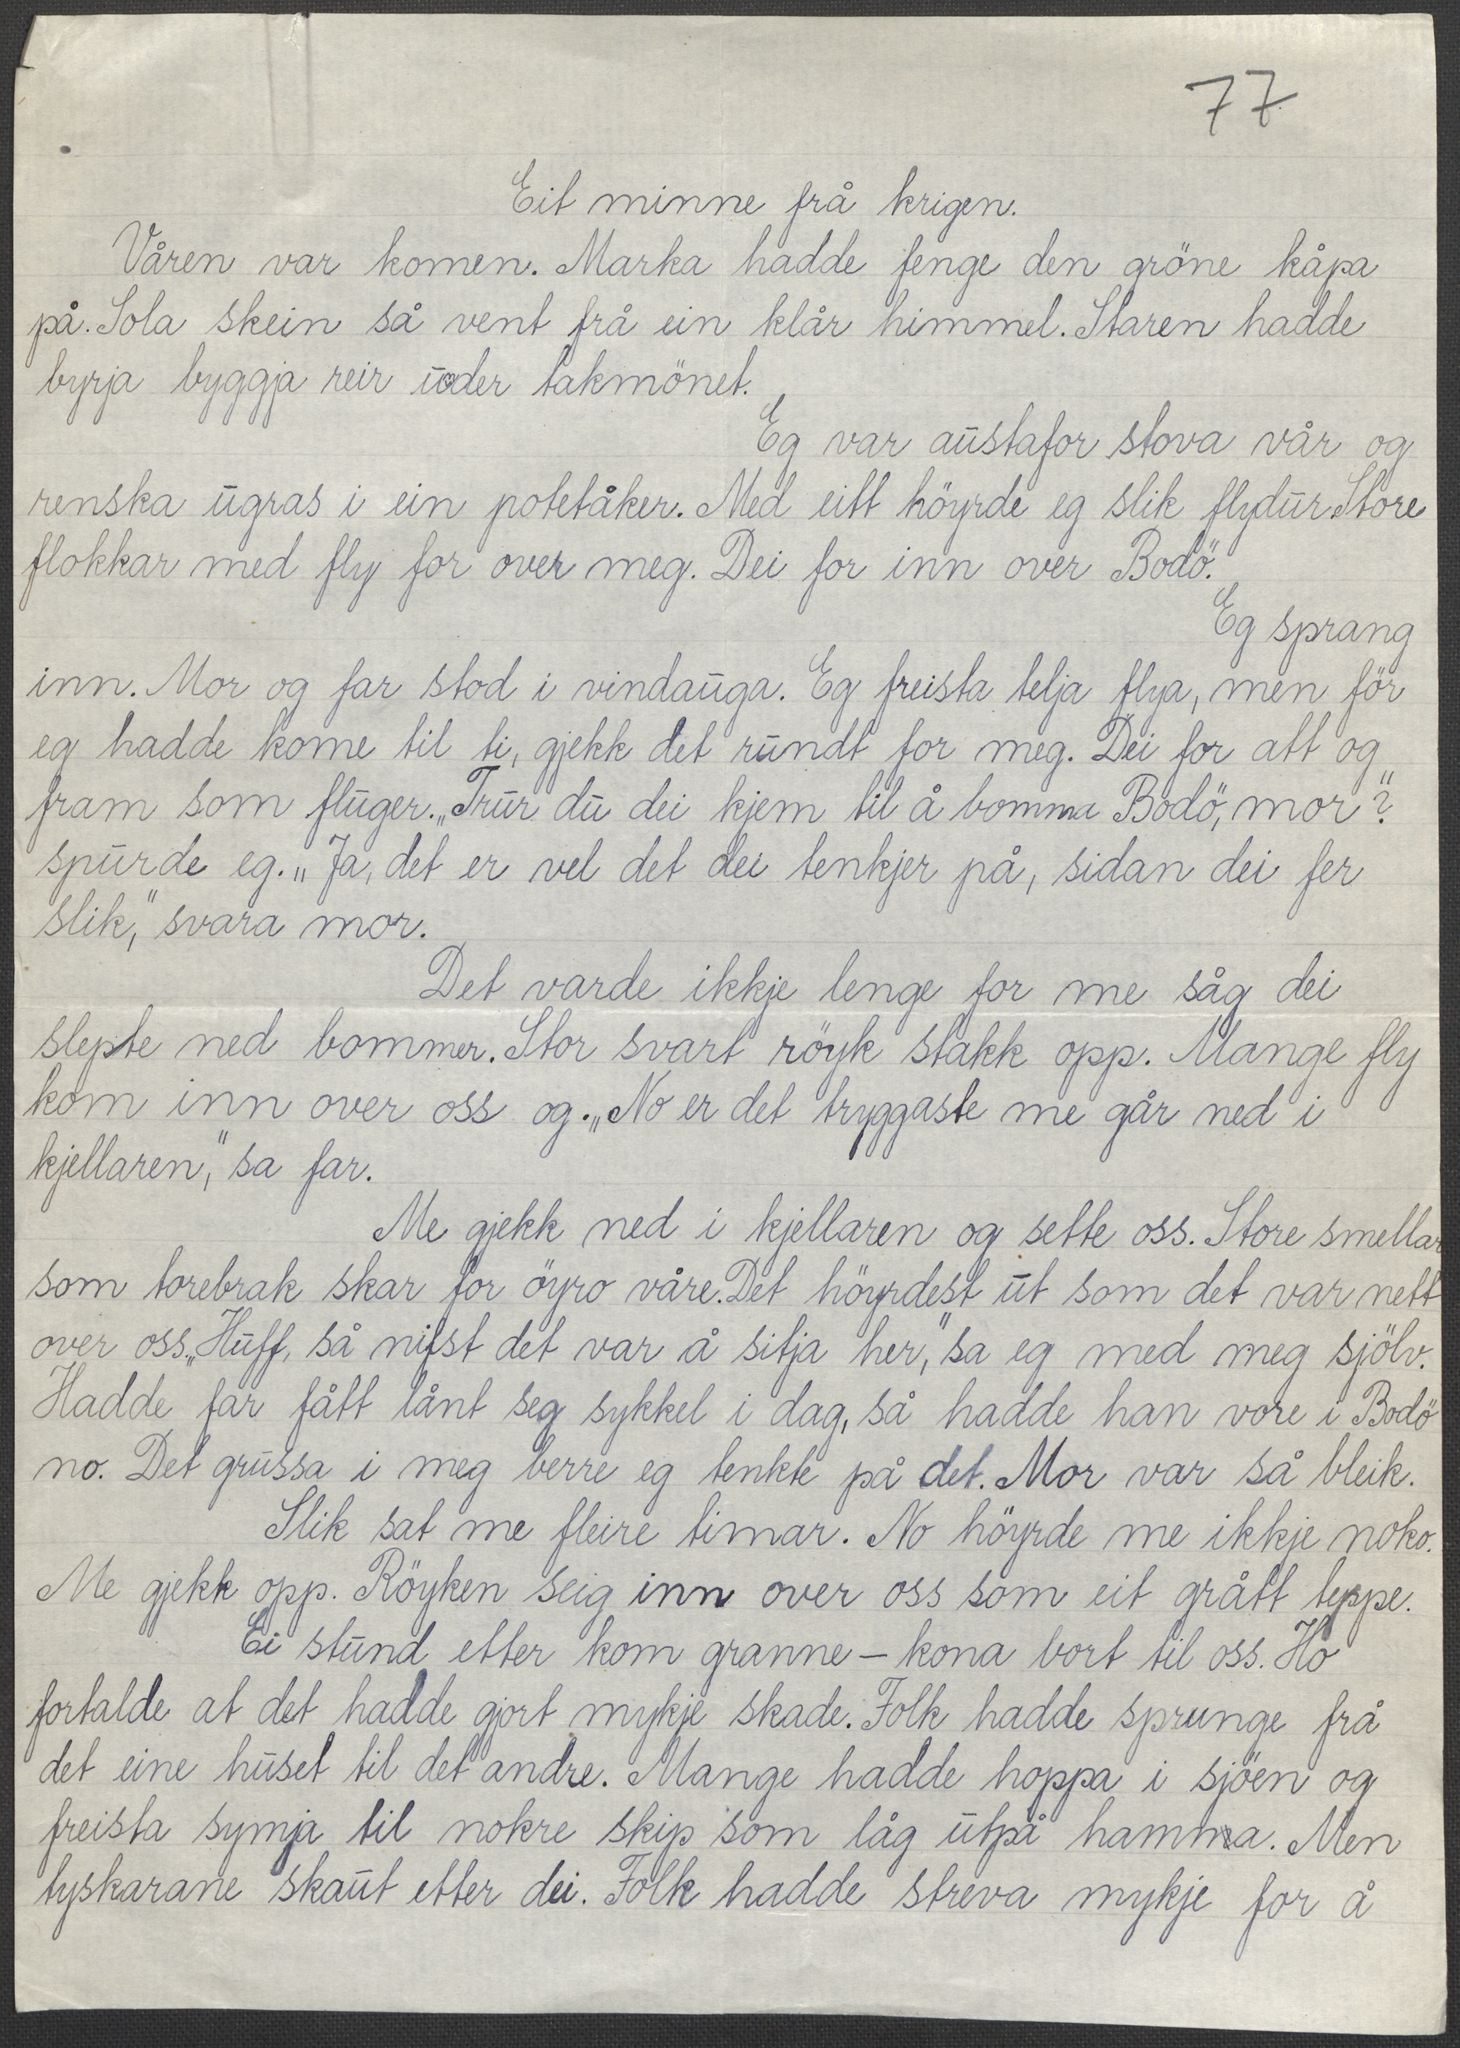 77
Eit minne frå krigen.
Våren var komen. Marka hadde fenge den gröne kåpa
på. Sola skein så vent frå ein klår himmel. Staren hadde
byrja byggja reir under takmönet.
Eg var austafor stova vår og
renska ugras i ein potetåker. Med eitt höyrde eg slik flydur. Store
flokkar med fly for over meg. Dei for inn over Bodö.
Eg sprang
inn. Mor og far stod i vindauga. Eg freista telja flya, men för
eg hadde kome til ti, gjekk det rundt for meg. Dei for att og
fram som fluger. „Trur du dei kjem til å bomma Bodö, mor"?
spurde eg. „Ja, det er vel det dei tenkjer på, sidan dei fer
slik," svara mor.
Det varde ikkje lenge for me såg dei
slepte ned bommer. Stor svart röyk stakk opp. Mange fly
kom inn over oss og. „No er det tryggaste me går ned i
kjellaren," sa far.
Me gjekk ned i kjellaren og sette oss. Store smellar
som torebrak skar for öyro våre. Det höyrdest ut som det var nett
over oss. „Huff, så nifst det var å sitja her," sa eg med meg sjölv.
Hadde far fått lånt seg sykkel i dag, så hadde han vore i Bodö
no. Det grussa i meg berre eg tenkte på det. Mor var så bleik.
Slik sat me fleire timar. No höyrde me ikkje noko.
Me gjekk opp. Röyken seig inn over oss som eit grått teppe.
Ei stund etter kom granne – kona bort til oss. Ho
fortalde at det hadde gjort mykje skade. Folk hadde sprunge frå
det eine huset til det andre. Mange hadde hoppa i sjöen og
freista symja til nokre skip som låg utpå hamna. Men
tyskarane skaut etter dei. Folk hadde streva mykje for å